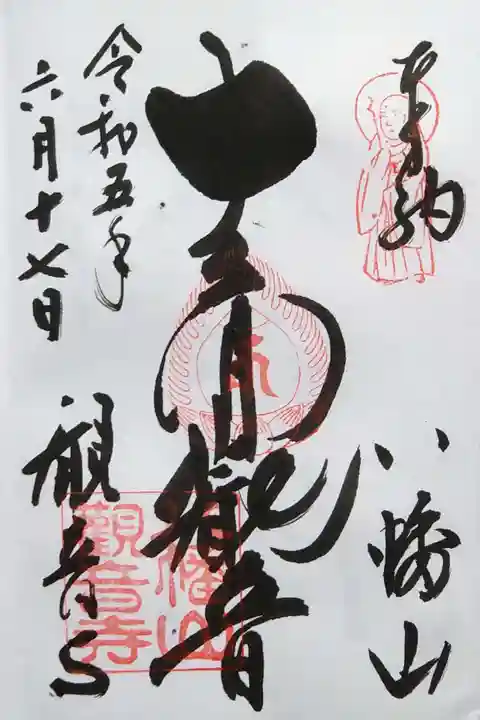 奉納
八幡山
観音
令和五年
六月十七日
観音寺
八幡山
觀音寺